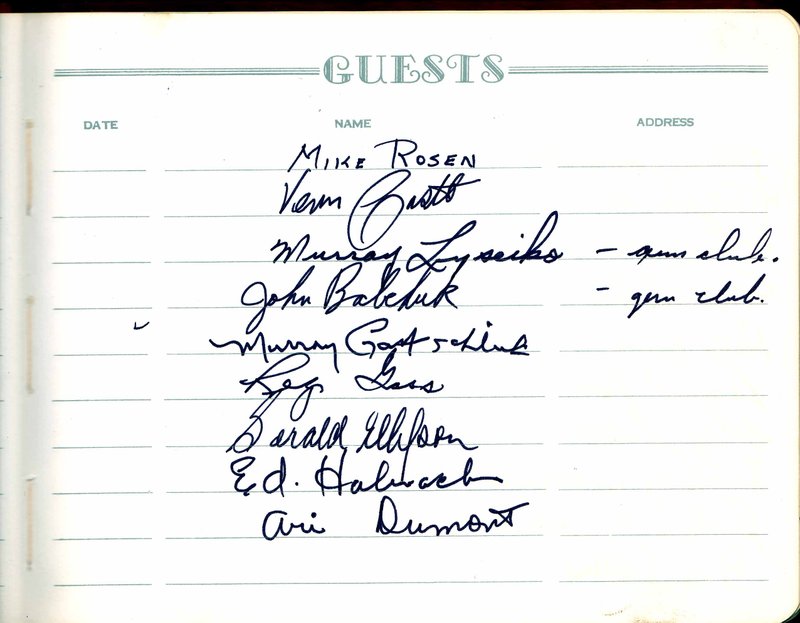 GUESTS
DATE NAME ADDRESS
MIKE ROSEN
Vern
Murray Lyseiko - gun club.
John Babchuk - gun club.
Murray Gottschlich
Reg Goss
Darald Ellefson
Ed. Halwach
Ari Dumont